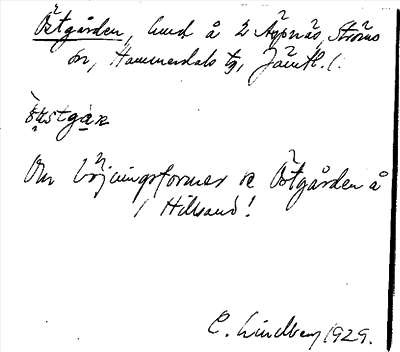 Östgården, hmd å 2 Äspnäs, Ströms
sn, Hammerdals tg, Jämtl. l.
Om böjningsformer se Östgården å
1 Hillsand!
C. Lindberg 1929.